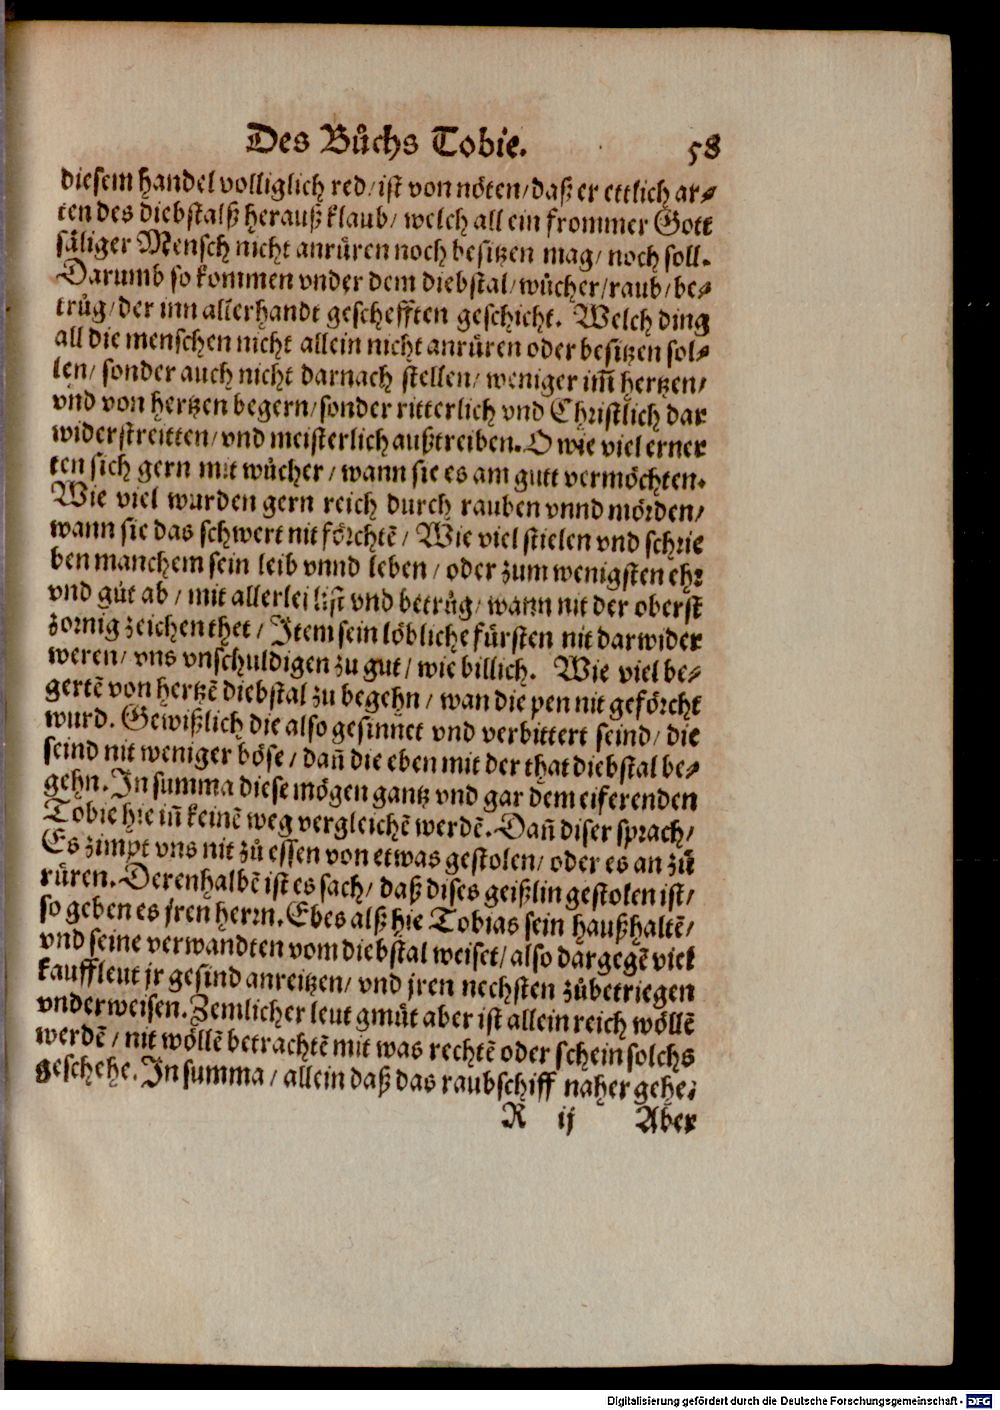 Des Bůchs Tobie. 58
diesem handel volliglich red/ ist von nöten/ daß er ettlich ar⸗
ten des diebstalß herauß klaub/ welch all ein frommer Gott
säliger Mensch nicht anrüren noch besitzen mag/ noch soll.
Darumb so kommen vnder dem diebstal/ wůcher/ raub/ be⸗
trůg/ der inn allerhandt geschefften geschicht. Welch ding
all die menschen nicht allein nicht anrüren oder besitzen sol⸗
len/ sonder auch nicht darnach stellen/ weniger im̃ hertzen/
vnd von hertzen begern/ sonder ritterlich vnd Christlich dar
widerstreitten/ vnd meisterlich außtreiben. O wie viel erner
ten sich gern mit wůcher/ wann sie es am gutt vermöchten.
Wie viel wurden gern reich durch rauben vnnd mörden/
wann sie das schwert nit förchtē/ Wie viel stielen vnd schrie
ben manchem sein leib vnnd leben/ oder zum wenigsten ehr
vnd gůt ab/ mit allerlei list vnd betrůg/ wann nit der oberst
zornig zeichen thet/ Item sein löbliche fürsten nit darwider
weren/ vns vnschuldigen zu gut/ wie billich. Wie viel be⸗
gertē von hertzē diebstal zu begehn/ wan die pen nit geförcht
wurd. Gewißlich die also gesinnet vnd verbittert seind/ die
seind nit weniger böse/ dañ die eben mit der that diebstal be⸗
gehn. In summa diese mögen gantz vnd gar dem eiferenden
Tobie hie iñ keinē weg vergleichē werdē. Dañ diser sprach/
Es zimpt vns nit zů essen von etwas gestolen/ oder es an zů
rüren. Derenhalbē ist es sach/ daß dises geißlin gestolen ist/
so geben es jren herrn. Ebes alß hie Tobias sein haußhaltē/
vnd seine verwandten vom diebstal weiset/ also dargegē viel
kauffleut jr gesind anreitzen/ vnd jren nechsten zůbetriegen
vnderweisen. Zemlicher leut gmůt aber ist allein reich wöllē
werdē/ nit wöllē betrachtē mit was rechtē oder schein solchs
geschehe. In summa/ allein daß das raubschiff naher gehe.
R ij Aber
Digitalisierung gefördert durch die Deutsche Forschungsgemeinschaft - DFG